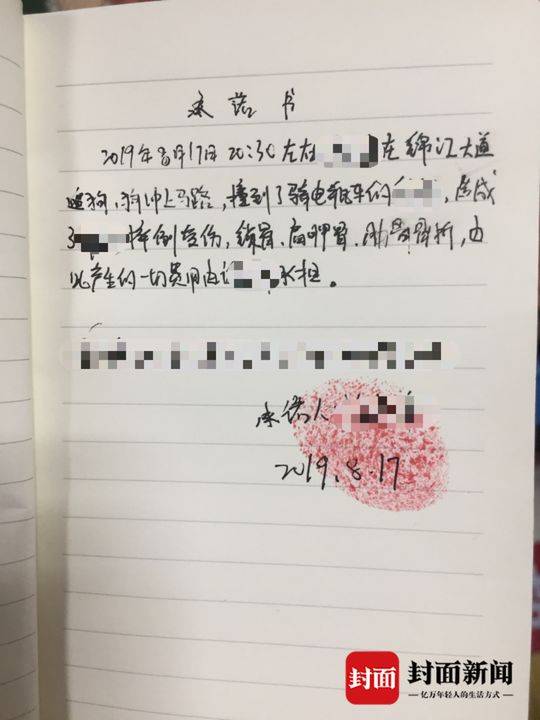 承诺书
2019年8月17日 20:30左右 在绵江大道
遛狗,狗冲上马路,撞到了骑电瓶车的 ,造成
了 摔倒受伤,锁骨、肩胛骨、肋骨骨折,由
此产生的一切费用由 承担。
承诺人
2019.8.17
封面 封面新闻
亿万年轻人的生活方式